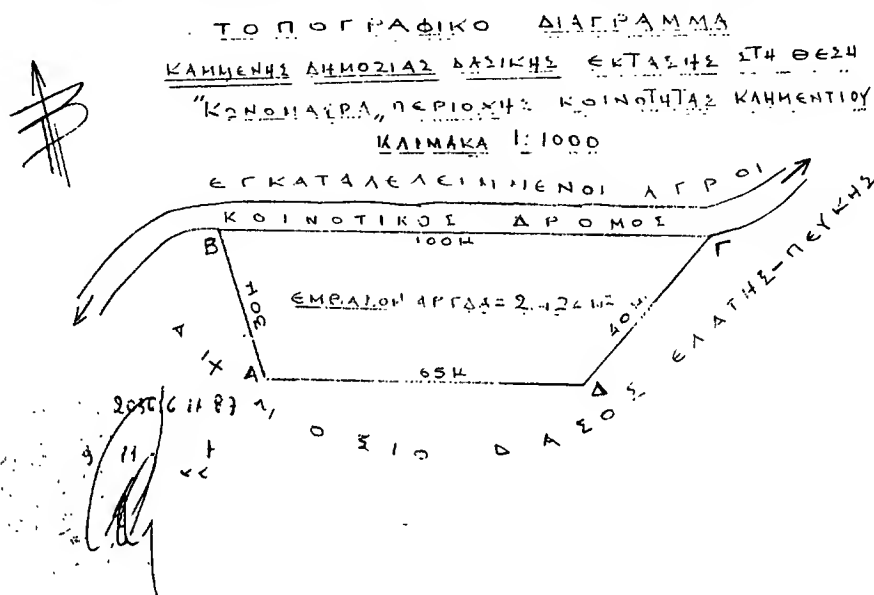 ΤΟΠΟΓΡΑΦΙΚΟ ΔΙΑΓΡΑΜΜΑ
ΚΑΜΜΕΝΗΣ ΔΗΜΟΣΙΑΣ ΔΑΣΙΚΗΣ ΕΚΤΑΣΗΣ ΣΤΗ ΘΕΣΗ
"ΚΩΝΟΜΑΙΡΑ" ΠΕΡΙΟΧΗΣ ΚΟΙΝΟΤΗΤΑΣ ΚΛΗΜΕΝΤΙΟΥ
ΚΛΙΜΑΚΑ 1:1000
ΕΓΚΑΤΑΛΕΛΕΙΜΜΕΝΟΙ ΑΓΡΟΙ
ΚΟΙΝΟΤΙΚΟΣ ΔΡΟΜΟΣ
Β 100Μ Γ
30Μ
ΕΜΒΑΔΟΝ ΑΒΓΔΑ=
40Μ
Α 65Μ Δ
ΔΑΣΟΣ ΕΛΑΤΗΣ-ΠΕΥΚΗΣ